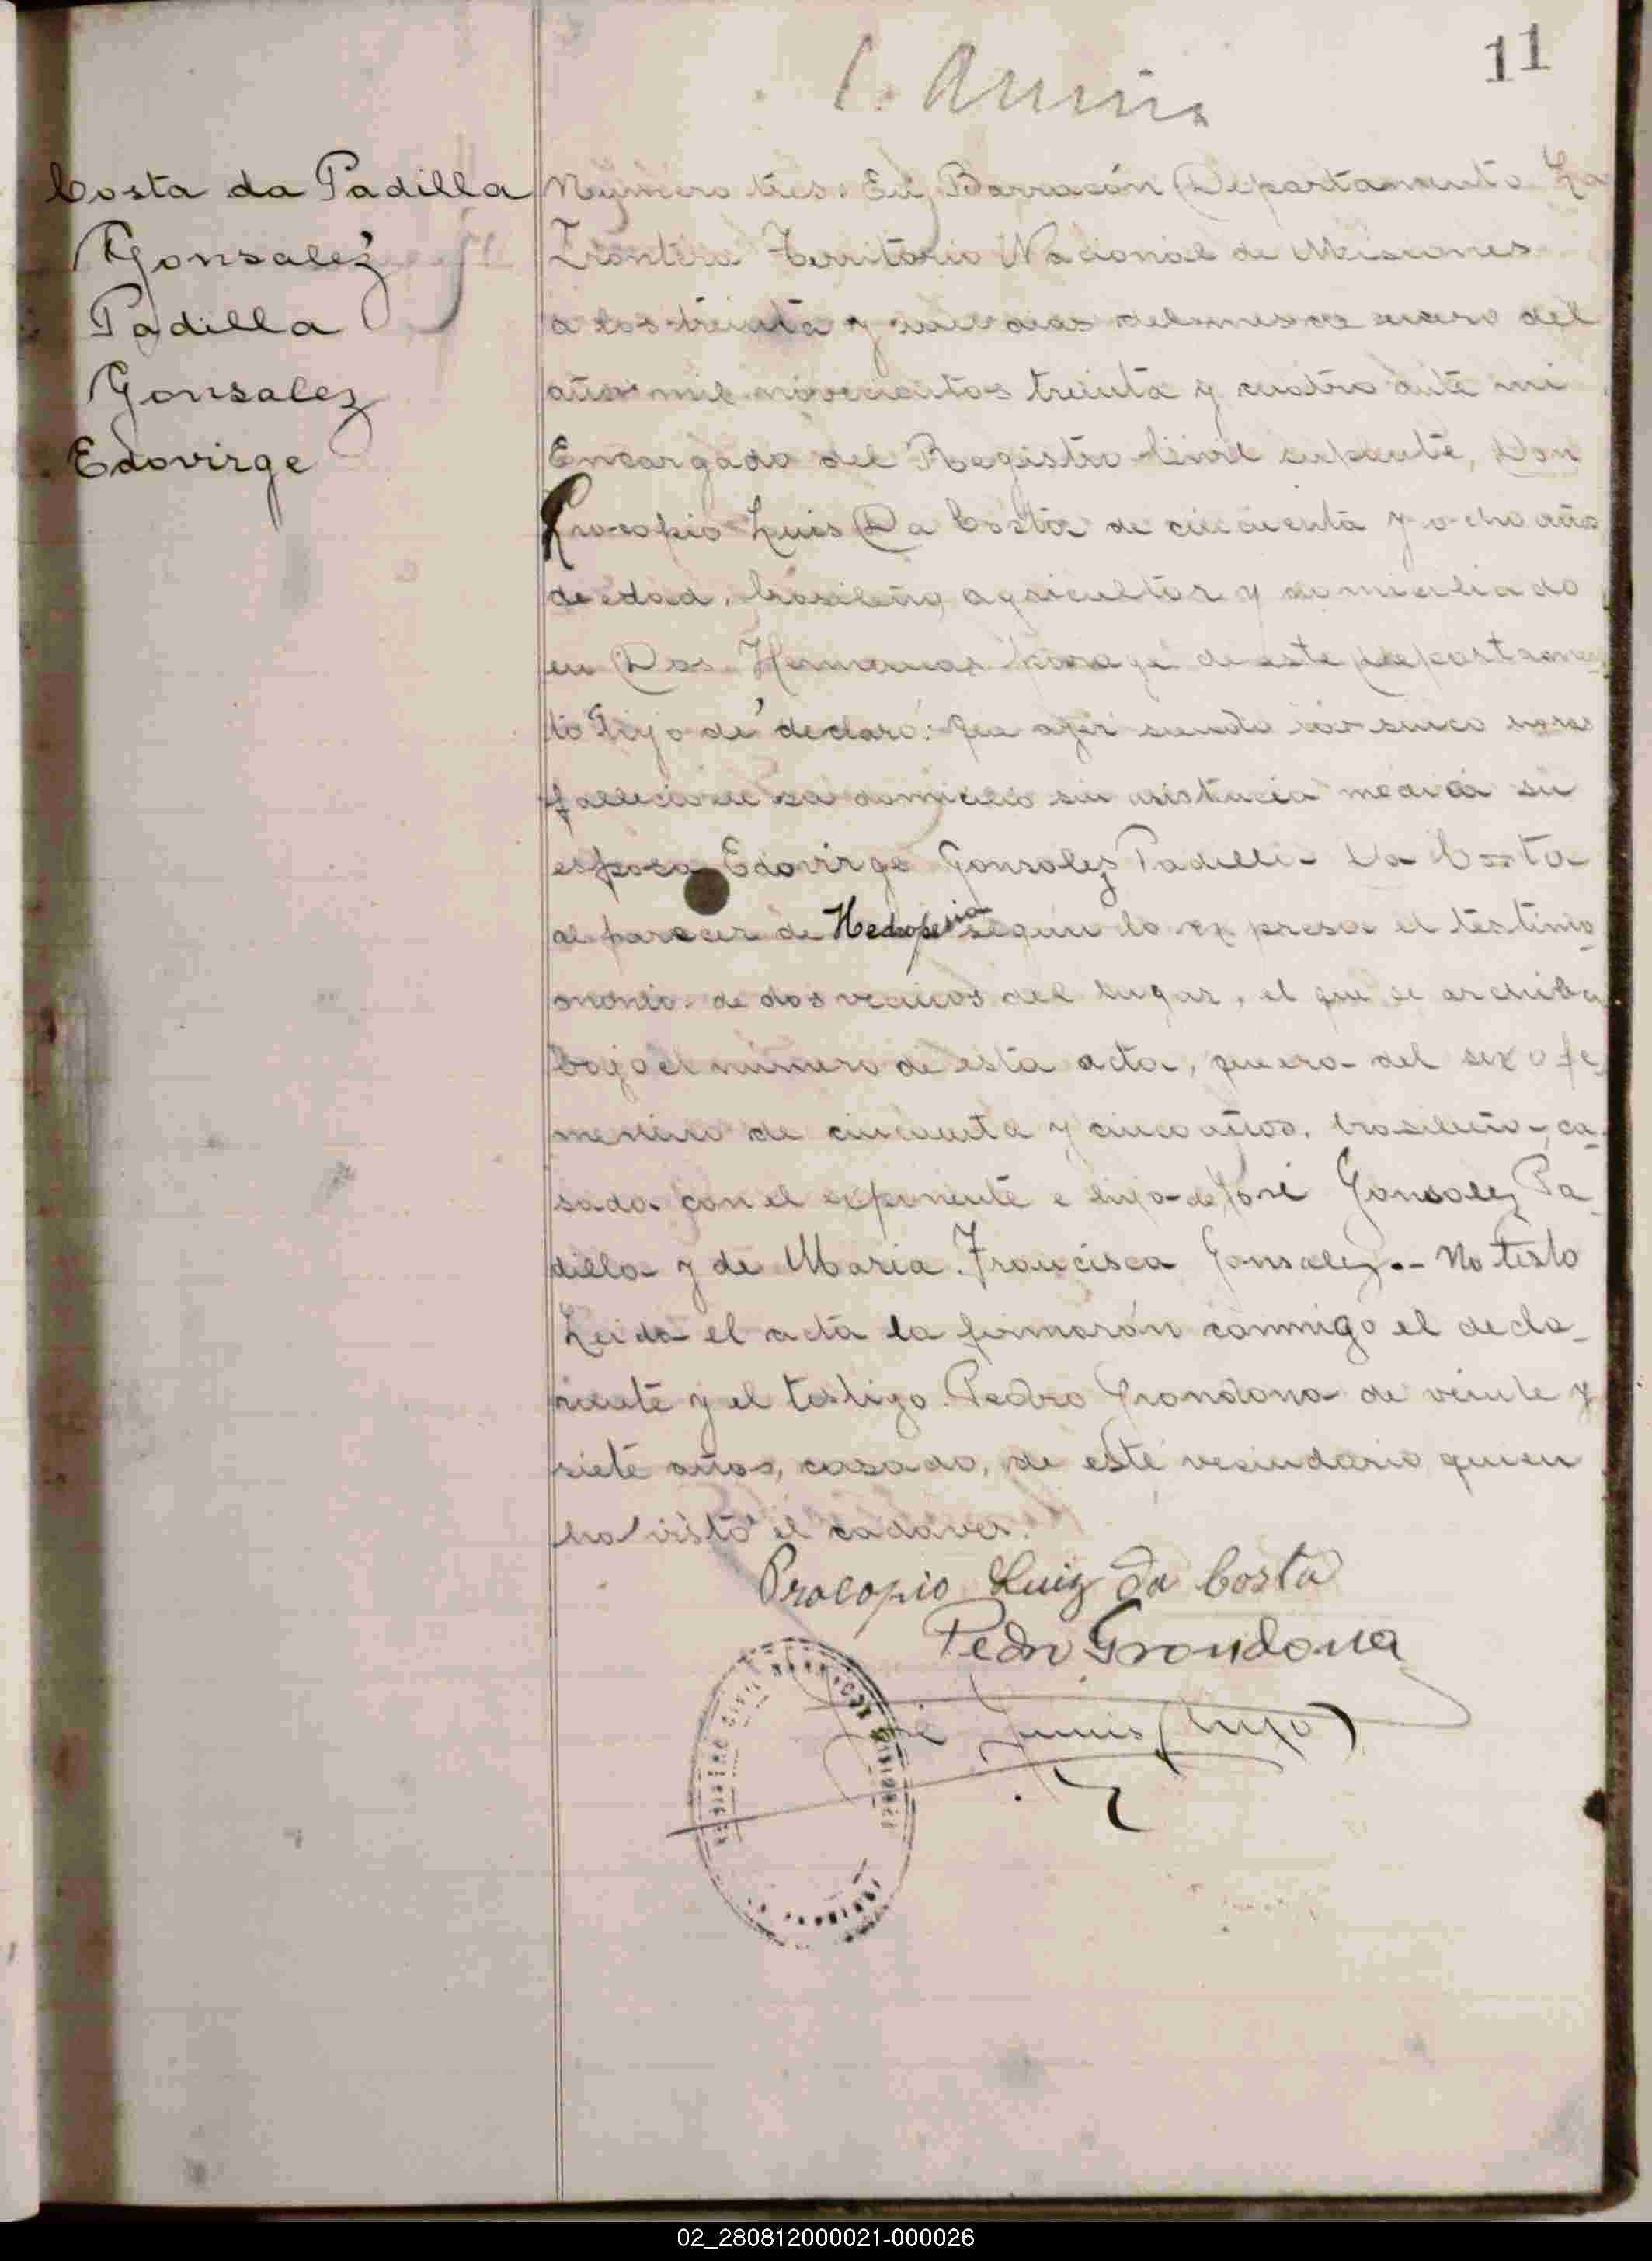 11
Costa da Padilla
Gonsalez
Padilla
Gonsalez
Edovirge
Número tres. En Barracón Departamento La
Frontera Territorio Nacional de Misiones
a los treinta y un dias del mes de enero del
año mil novecientos treinta y cuatro ante mi
Encargado del Registro Civil suplente, Don
Procopio Luis Da Costa de cincuenta y ocho años
de edad, brasileño, agricultor y domiciliado
en Dos Hermanas paraje de este departamen
to declaró: que ayer siendo las sinco horas
fallecio en su domicilio sin asistencia medica su
esposa Edovirge Gonsalez Padilla Da Costa
al parecer de Hedropesia según lo expresa el testimo
monio de dos vecinos del lugar, el que se archiba
bajo el número de esta acta, que era del sexo fe
menino de cincuenta y cinco años, brasileña, ca
sada con el exponente e hija de José Gonsalez Pa
dilla y de Maria Francisca Gonsalez.- No testo
Leida el acta la firmarón conmigo el decla-
rante y el testigo Pedro Grondona de veinte y
siete años, casado, de este vesindario quien
ha visto el cadaver.
Procopio Luiz da Costa
Pedro Grondona
(hijo)
REGISTRO CIVIL MISIONES
02_280812000021-000026